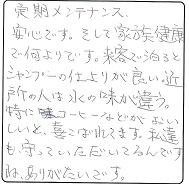 定期メンテナンス、
安心です。そして家族健康
で何よりです。来客で泊ると
シャンプーの仕上りが良い。近
所の人は水の味が違う。
特にコーヒーなどがおい
しいと、喜こばれてます。私達
も守っていただいてるんです
ね、ありがたいです。